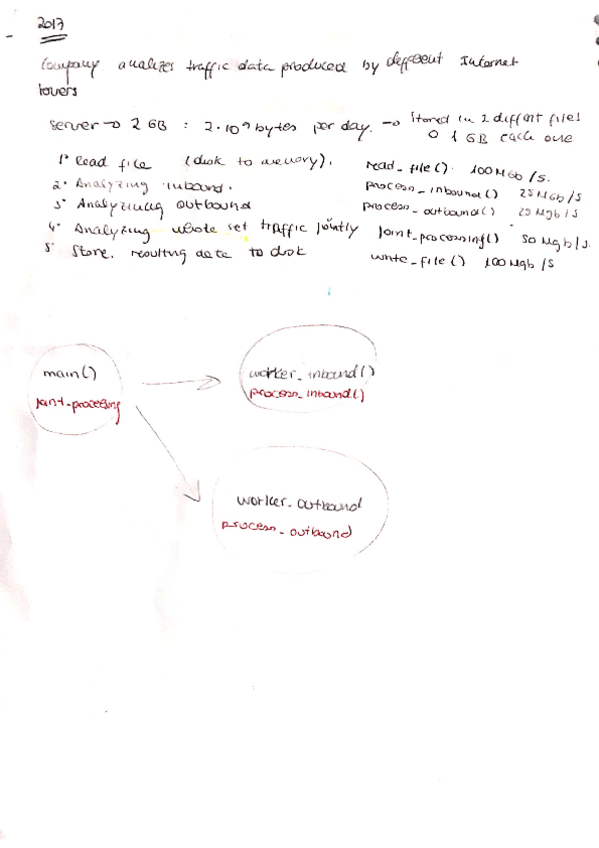 2017
Company analizes traffic data produced by different Internet
towers
Server → 2 GB : 2·10⁹ bytes per day. → Stored in 2 diffent files
0 1 GB each one
1º Read file (disk to memory). read_file() 100 MGb /s.
2º Analyzing inbound. process_inbound() 25 MGb/s
3º Analyzing outbound process_outbound() 25 Mgb/s
4º Analyzing whole set traffic jointly joint_processing() 50 Mgb/s.
5º Store resulting data to disk write_file() 100 Mgb/s
main()
joint-processing
worker_inbound()
process_inbound()
worker_outbound
process_outbound